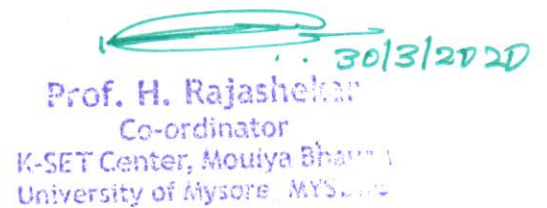 30/3/2020
Prof. H. Rajashekar
Co-ordinator
K-SET Center, Moulya
University of Mysore